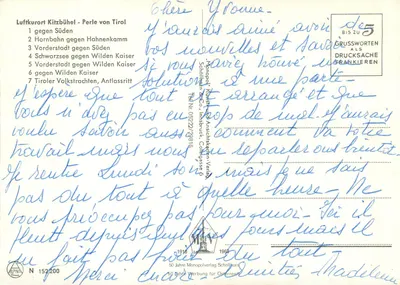 Luftkurort Kitzbühel - Perle von Tirol
1 gegen Süden
2 Hornbahn gegen Hahnenkamm
3 Vorderstadt gegen Süden
4 Schwarzsee gegen Wilden Kaiser
5 Vorderstadt gegen Wilden Kaiser
6 gegen Wilden Kaiser
7 Tiroler Volkstrachten, Antlassritt
BIS ZU 5
GRUSSWORTEN
ALS
DRUCKSACHE
FRANKIEREN
Chère Yvonne.
J'aurais aimé avoir de
vos nouvelles et savoir
si vous avez trouvé, une
solution à une parte-
J'espère que tout est arrangé et que
vous n'avez pas eu trop de mal. J'aurais
voulu savoir aussi comment va votre
travail mais nous en reparlerons bientôt
Je rentre Lundi soir mais je ne sais
pas du tout à quelle heure - Ne
vous préoccupez pas pour moi - Ici il
pleut depuis jours mais il
ne fait pas froid du tout -
Merci encore amitiés Madeleine
N 152200